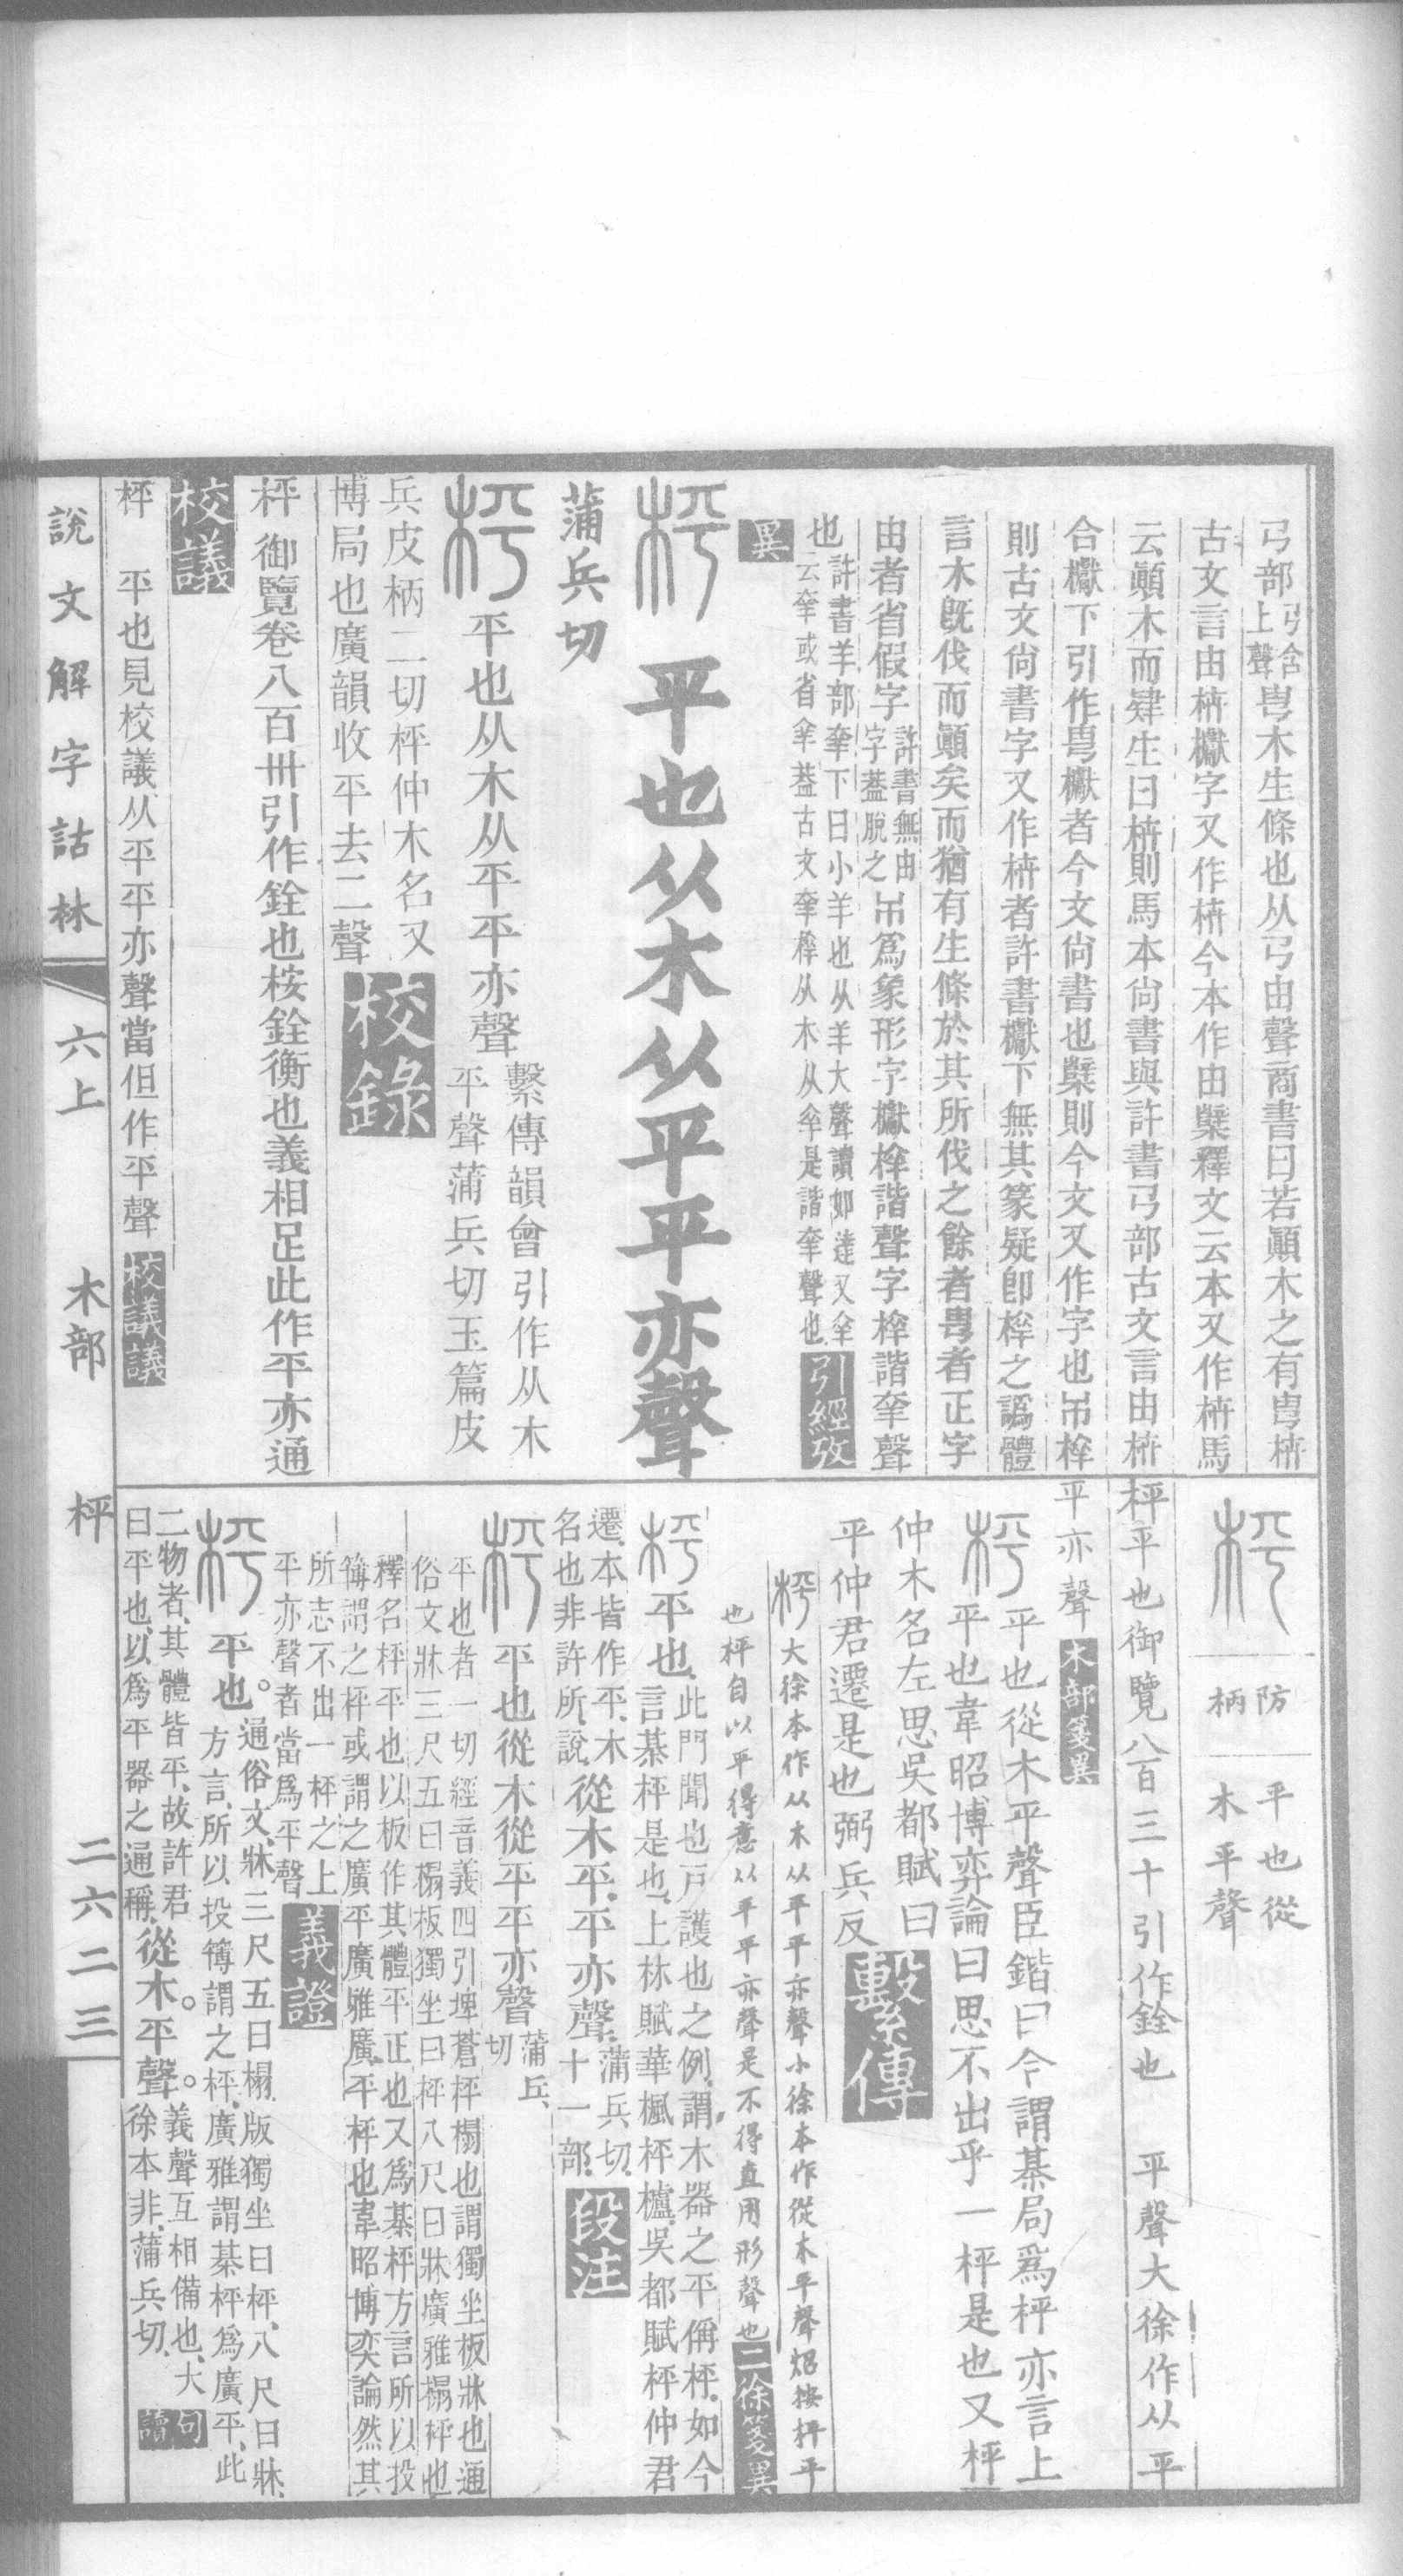 弓部𢎘含上聲㽕木生條也从弓由聲商書曰若顚木之有㽕枿
古文言由枿櫱字又作枿今本作由櫱釋文云本又作枿馬
云顚木而肄生曰枿則馬本尙書與許書弓部古文言由枿
合櫱下引作㽕櫱者今文尙書也櫱則今文又作字也𣎴㭾
則古文尙書字又作枿者許書櫱下無其篆疑卽㭾之譌體
言木旣伐而顚矣而猶有生條於其所伐之餘者㽕者正字
由者省假字許書無由字葢脫之𣎴爲象形字櫱㭾諧聲字㭾諧羍聲
也許書羊部羍下曰小羊也从羊大聲讀如達又㚔云羍或省㚔葢古文羍㭾从木从㚔是諧羍聲也引經攷
異
枰 平也从木从平平亦聲
蒲兵切
枰 平也从木从平平亦聲繫傳韻會引作从木平聲蒲兵切玉篇皮
兵皮柄二切枰仲木名又
博局也廣韻收平去二聲校錄
枰 御覽卷八百卅引作銓也桉銓衡也義相足此作平亦通
校議
枰 平也見校議从平平亦聲當但作平聲校議議
枰 防柄 平也從木平聲
枰平也御覽八百三十引作銓也 平聲大徐作从平
平亦聲木部箋異
枰平也從木平聲臣鍇曰今謂棊局爲枰亦言上
平也韋昭博弈論曰思不出乎一枰是也又枰
仲木名左思吳都賦曰
平仲君遷是也弼兵反繫傳
枰大徐本作从木从平平亦聲小徐本作從木平聲炤按枰平
也枰自以平得意以平平亦聲是不得直用形聲也二徐箋異
枰平也此門聞也戶護也之例謂木器之平偁枰如今
言棊枰是也上林賦華楓枰櫨吳都賦枰仲君
遷本皆作平木
名也非許所說從木平平亦聲蒲兵切十一部段注
枰 平也從木從平平亦聲蒲兵切
平也者一切經音義四引埤蒼枰榻也謂獨坐板牀也通
俗文牀三尺五曰榻板獨坐曰枰八尺曰牀廣雅榻枰也
釋名枰平也以板作其體平正也又爲棊枰方言所以投
簙謂之枰或謂之廣平廣雅廣平枰也韋昭博奕論然其
所志不出一枰之上
平亦聲者當爲平聲義證
枰 平也通俗文牀三尺五曰榻版獨坐曰枰八尺曰牀
方言所以投簙謂之枰廣雅謂棊枰爲廣平此
二物者其體皆平故許君
曰平也以爲平器之通稱從木平聲義聲互相備也大徐本非蒲兵切句讀
說文解字詁林 六上 木部 枰 二六二三